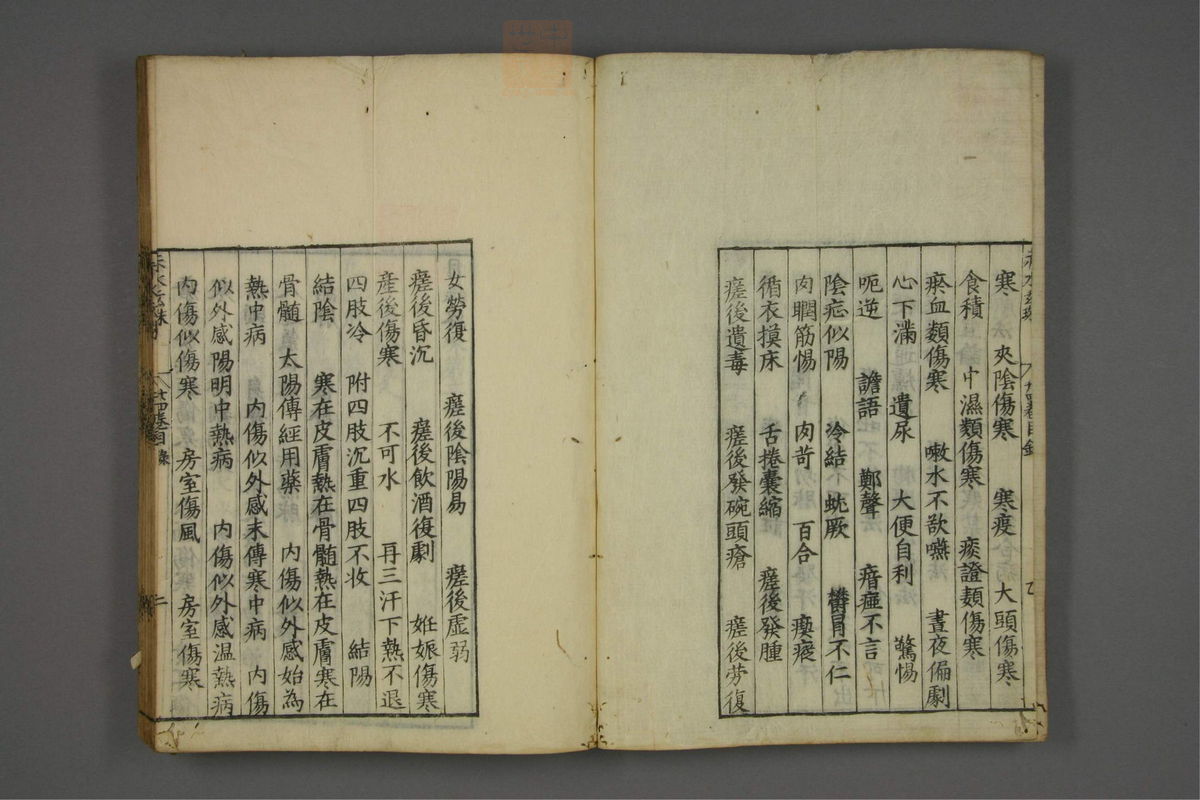 寒　夾陰傷寒　寒疫　大頭傷寒
食積　中濕類傷寒　痰證類傷寒
瘀血類傷寒　嗽水不欲嚥　晝夜偏劇
心下滿　遺尿　大便自利　驚惕
呃逆　譫語　鄭聲　瘖瘂不言
陰症似陽　冷結　蚘厥　鬱冒不仁
肉瞤筋惕　肉苛　百合　瘈瘲
循衣摸床　舌捲囊縮　瘥後發腫
瘥後遺毒　瘥後發碗頭瘡　瘥後勞復
女勞復　瘥後陰陽易　瘥後虛弱
瘥後昏沉　瘥後飲酒復劇　妊娠傷寒
産後傷寒　不可水　再三汗下熱不退
四肢冷　附四肢沉重四肢不收　結陽
結陰　寒在皮膚熱在骨髓熱在皮膚寒在
骨髓　太陽傳經用藥　内傷似外感始為
熱中病　内傷似外感末傳寒中病　内傷
似外感陽明中熱病　内傷似外感温熱病
内傷似傷寒　房室傷風　房室傷寒
廿四卷目錄
二